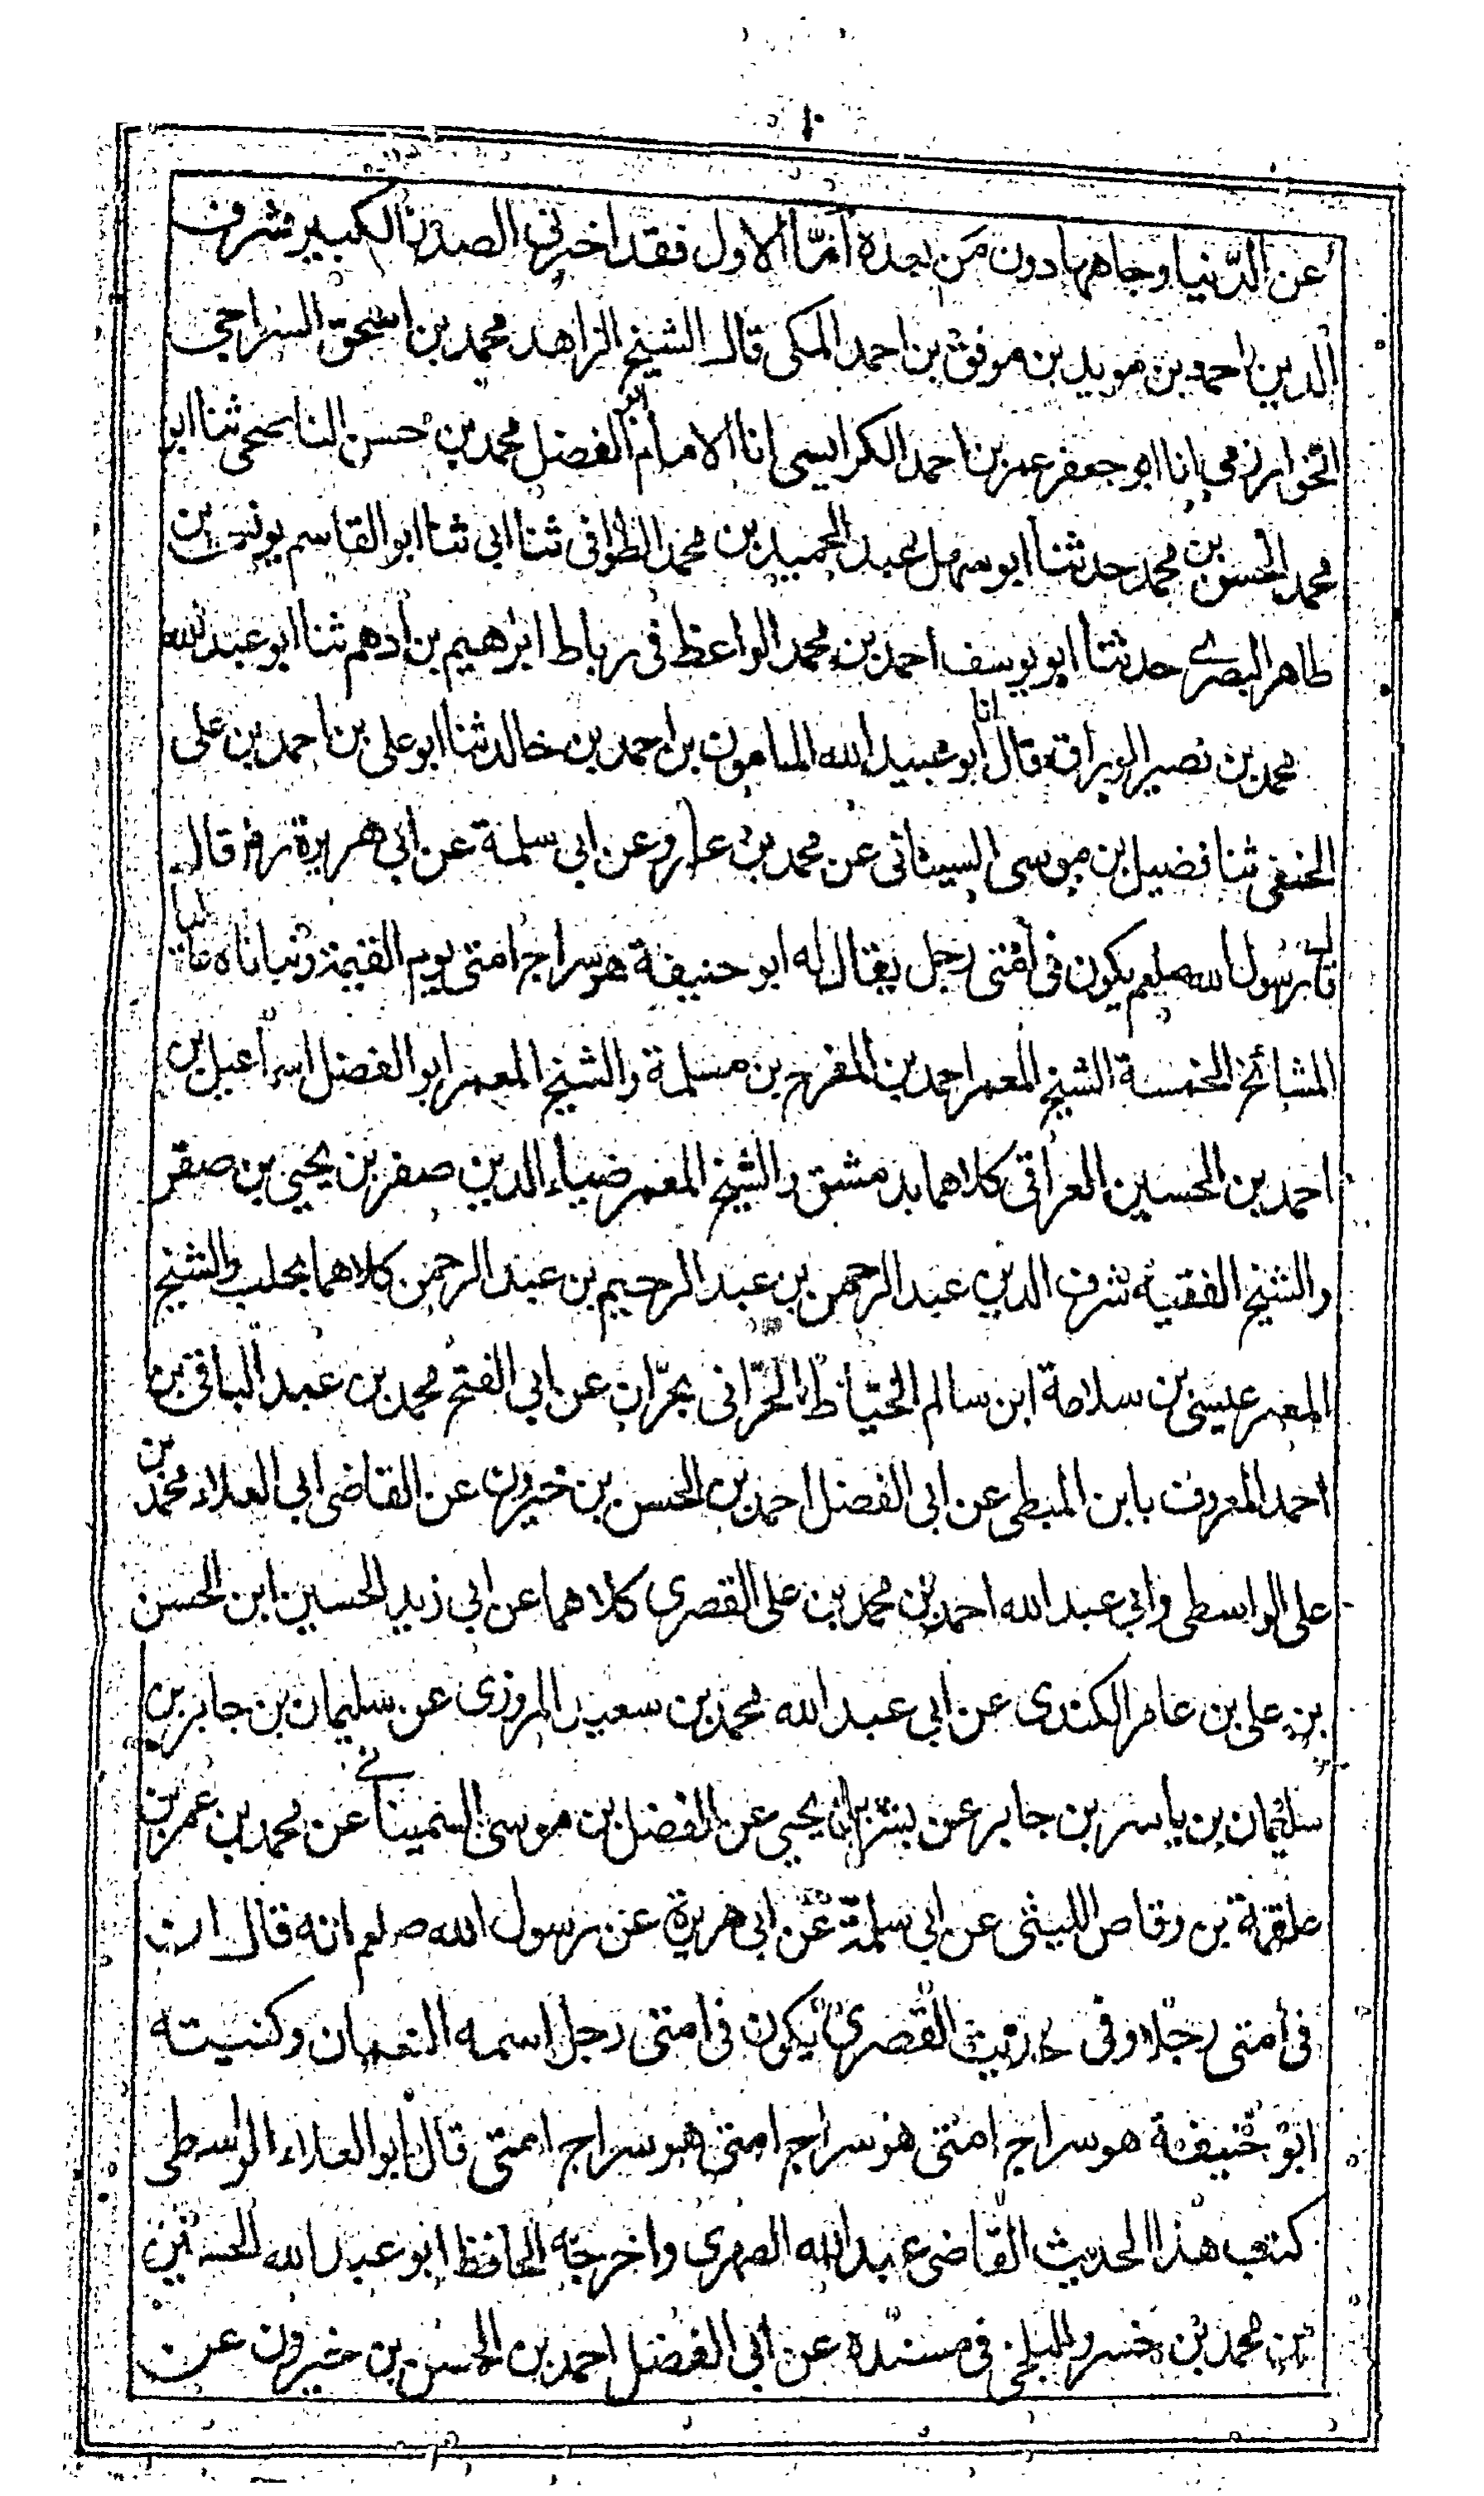 عن الدّنيا وجاهها دون مَن بعده أمّا الاول فقد اخبرني الصدر الكبير شرف
الدين احمد بن مويد بن موفق بن احمد المكى قال الشيخ الزاهد محمد بن اسحق السراجي
الخوارزمي انا ابو جعفر عمر بن احمد الكرابيسى انا الامام ابو الفضل محمد بن حسن الناصحى ثنا ابو
محمد الحسن بن محمد حدثنا ابو سهل عبد الحميد بن محمد الطوافى ثنا ابى ثنا ابو القاسم يونس بن
طاهر البصرے حدثنا ابو يوسف احمد بن محمد الواعظ فى رباط ابرهيم بن ادهم ثنا ابو عبد الله
محمد بن نصير الوراق قال انا ابو عبيد الله المامون بن احمد بن خالد ثنا ابو على بن احمد بن على
الحنفى ثنا فضيل بن موسى السينانى عن محمد بن عمرو عن ابى سلمة عن ابى هريرة رض قال
قال رسول الله صلعم يكون فى امتى رجل يقال له ابو حنيفة هو سراج امتى يوم القيمة
المشائخ الخمسة الشيخ المعمر احمد بن المفرج بن مسلمة والشيخ المعمر ابو الفضل اسماعيل بن
احمد بن الحسين العراقى كلاهما بدمشق والشيخ المعمر ضياء الدين صقر بن يحيى بن صقر
والشيخ الفقيه شرف الدين عبد الرحمن بن عبد الرحيم بن عبد الرحمن كلاهما بحلب والشيخ
المعمر عيسى بن سلامة ابن سالم الخيّاط الحرّانى بحرّان عن ابى الفتح محمد بن عبد الباقى بن
احمد المعروف بابن البطى عن ابى الفضل احمد بن الحسن بن خيرون عن القاضى ابى العلاء محمد بن
على الواسطى وابى عبد الله احمد بن محمد بن على القصرى كلاهما عن ابى زيد الحسين ابن الحسن
بن على بن عامر الكندى عن ابى عبد الله محمد بن سعيد المروزى عن سليمان بن جابر بن
سليمان بن ياسر بن جابر عن بشر بن يحيى عن الفضل بن موسى السينانے عن محمد بن عمر بن
علقمة بن وقاص الليثى عن ابى سلمة عن ابى هريرة عن رسول الله صلعم انه قال ان
فى امتى رجلا وفى حديث القصرى يكون فى امتى رجل اسمه النعمان وكنيته
ابو حنيفة هو سراج امتى هو سراج امتى هو سراج امتى قال ابو العلاء الواسطى
كتب هذا الحديث القاضى عبد الله الصمرى واخرجه الحافظ ابو عبد الله الحسين
بن محمد بن خسرو البلخى فى مسنده عن ابى الفضل احمد بن الحسن بن خيرون عن